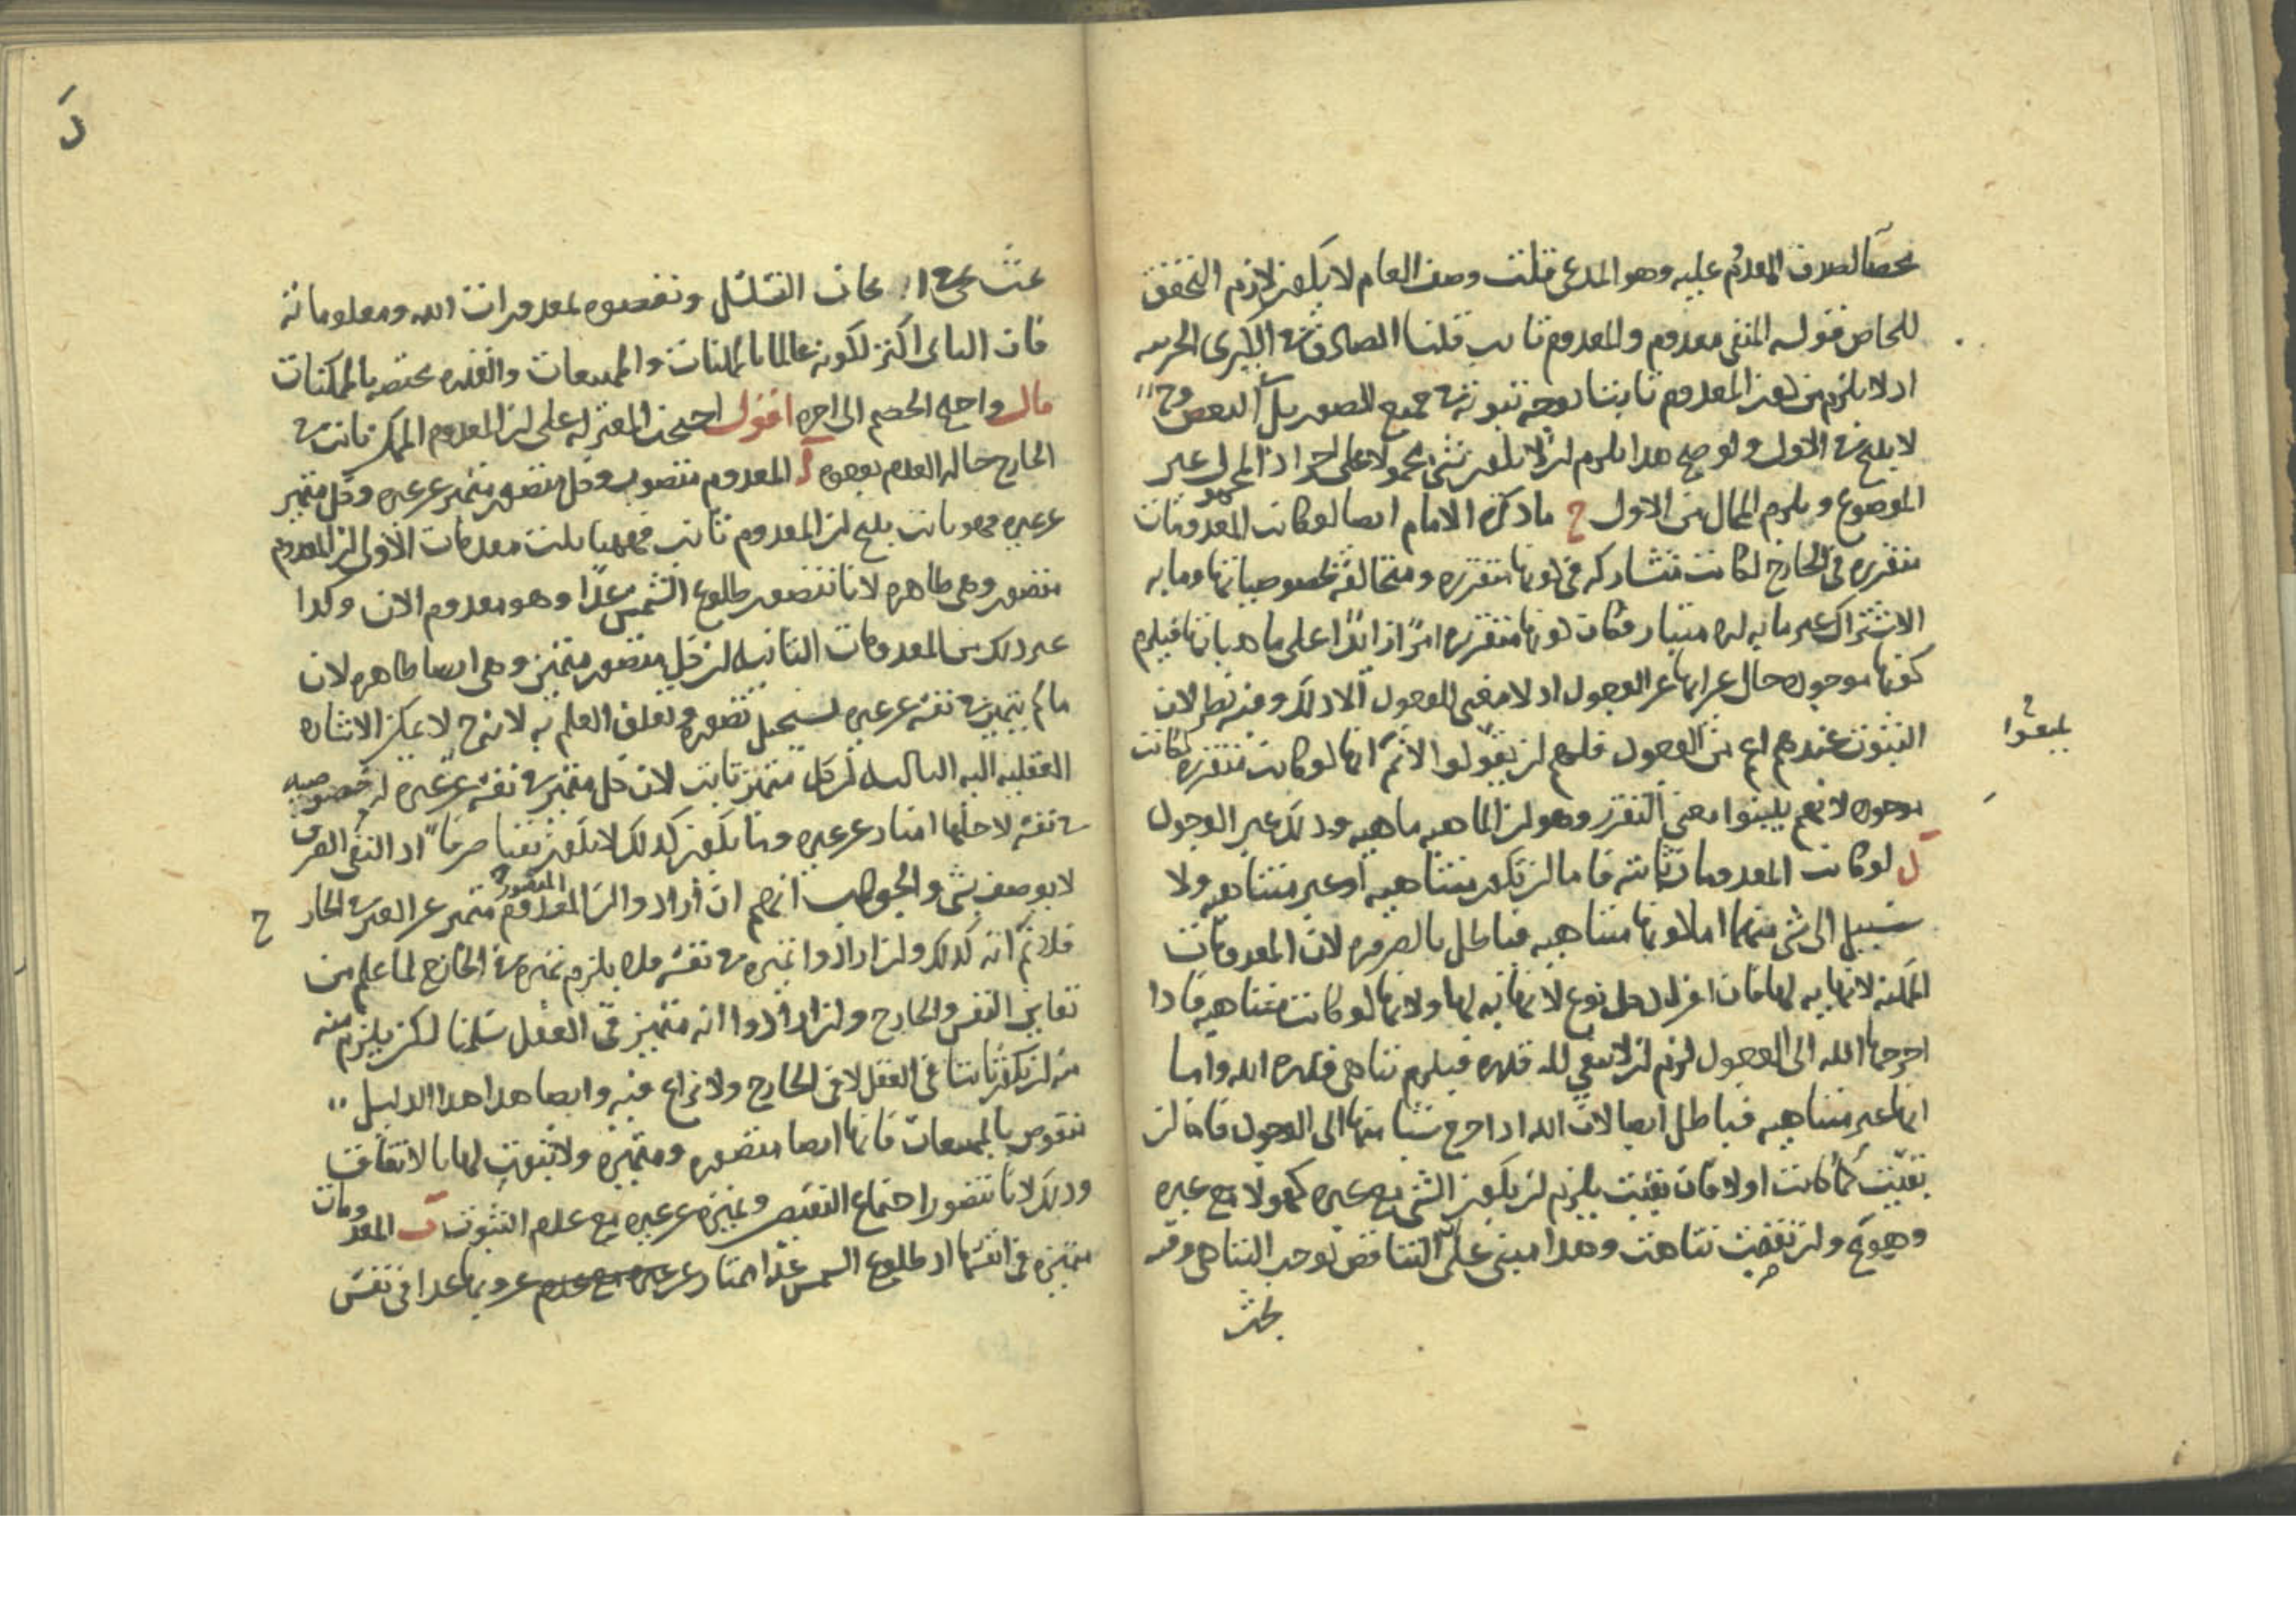 محضا لصدق المعدوم عليه وهو المدعى قلت وصف العام لا يكون لازم التحقق
للخاص فقوله المنفى معدوم والمعدوم ثابت قلنا الصادق الكبرى الجزئيه
اذ لا يلزم من كون المعدوم ثابتا بوجه ثبوته فى جميع الصور بل البعض وح
لا ينتج فى الاول ولو صح هذا يلزم ان لا يكون شئ محمولا على اذ المحمول غير
الموضوع ويلزم المحال من الاول ح ما ذكره الامام ايضا لو كانت المعدومات
متقرره فى الخارج لكانت متشاركه فى كونها متقرره ومتخالفه بخصوصياتها وما به
الاشتراك غير ما به الامتياز فكان كونها متقرره امرا زايدا على ماهياتها فيلزم
كونها موجوده حال عرائها عن الوجود اذ لا معنى للوجود الا ذلك وفيه نظر لان
الثبوت عندهم اعم من الوجود فلهم ان يقولوا لا نم انها لو كانت متقرره لكانت
موجوده لانهم يثبتوا معنى التقرر وهو ان الماهيه ماهيه وذلك غير الوجود
ل لو كانت المعدومات ثابته فاما ان تكون متناهيه او غير متناهيه ولا
سبيل الى شئ منهما اما كونها متناهيه فباطل بالضروره لان المعدومات
الممكنه لا نهايه لها فان افراد كل نوع لا نهايه لها ولانها لو كانت متناهيه فاذا
اخرجها الله الى الوجود لزم ان لا يبقى لله قدره فيلزم تناهى قدره الله واما
انها غير متناهيه فباطل ايضا لان الله اذا اخرج شيئا منها الى الوجود فاما ان
بقيت كما كانت اولا فان بقيت يلزم ان يكون الشئ مع غيره كهو لا مع غيره
وهو مح وان نقصت تناهت وهذا مبنى على ان التناقص يوجب التناهى وفيه
بحث
يثبتوا
بحث فان التسلسل ونقصوه بمقدورات الله ومعلوماته
فان الثانى اكثر لكونه عالما بالممكنات والممتنعات والقدره مختصه بالممكنات
قال واحتج الخصم الى اخره اقول احتجت المعتزله على ان المعدوم الممكن ثابت فى
الخارج حاله العدم بوجوه آ المعدوم متصور وكل متصور متميز عن غيره وكل متميز
عن غيره فهو ثابت ينتج ان المعدوم ثابت فههنا ثلث مقدمات الاولى ان المعدوم
متصور وهى ظاهره لانا نتصور طلوع الشمس غدا وهو معدوم الان وكذا
غير ذلك من المعدومات الثانيه ان كل متصور متميز وهى ايضا ظاهره لان
ما لم يتميز فى نفسه عن غيره يستحيل تصوره وتعلق العلم به لانه ح لا يمكن الاشاره
العقليه اليه الثالثه ان كل متميز ثابت لان كل متميز فى نفسه عن غيره له خصوصيه
فى نفسه لاجلها امتاز عن غيره وما يكون كذلك لا يكون نفيا صرفا اذ النفى الصرف
لا يوصف بشئ والجواب انهم ان ارادوا ان المعدوم المتصور متميز عن الغير فى الخارج
فلا نم انه كذلك وان ارادوا تميزه فى نفسه فلا يلزم تميزه فى الخارج لما علم من
تغاير النفس والخارج وان ارادوا انه متميز فى العقل سلمنا لكن يلزم منه
منه ان يكون ثابتا فى العقل لا فى الخارج ولا نزاع فيه وايضا هذا هذا الدليل
منقوض بالممتنعات فانها ايضا متصوره ومتميزه ولا ثبوت لها بالاتفاق
وذلك لانا نتصور اجتماع النقيضين وتميزه عن غيره مع عدم الثبوت ب المعدومات
متميزه فى انفسها اذ طلوع الشمس غدا ممتاز عن غيره مع عدم غروبها غدا فى نفس